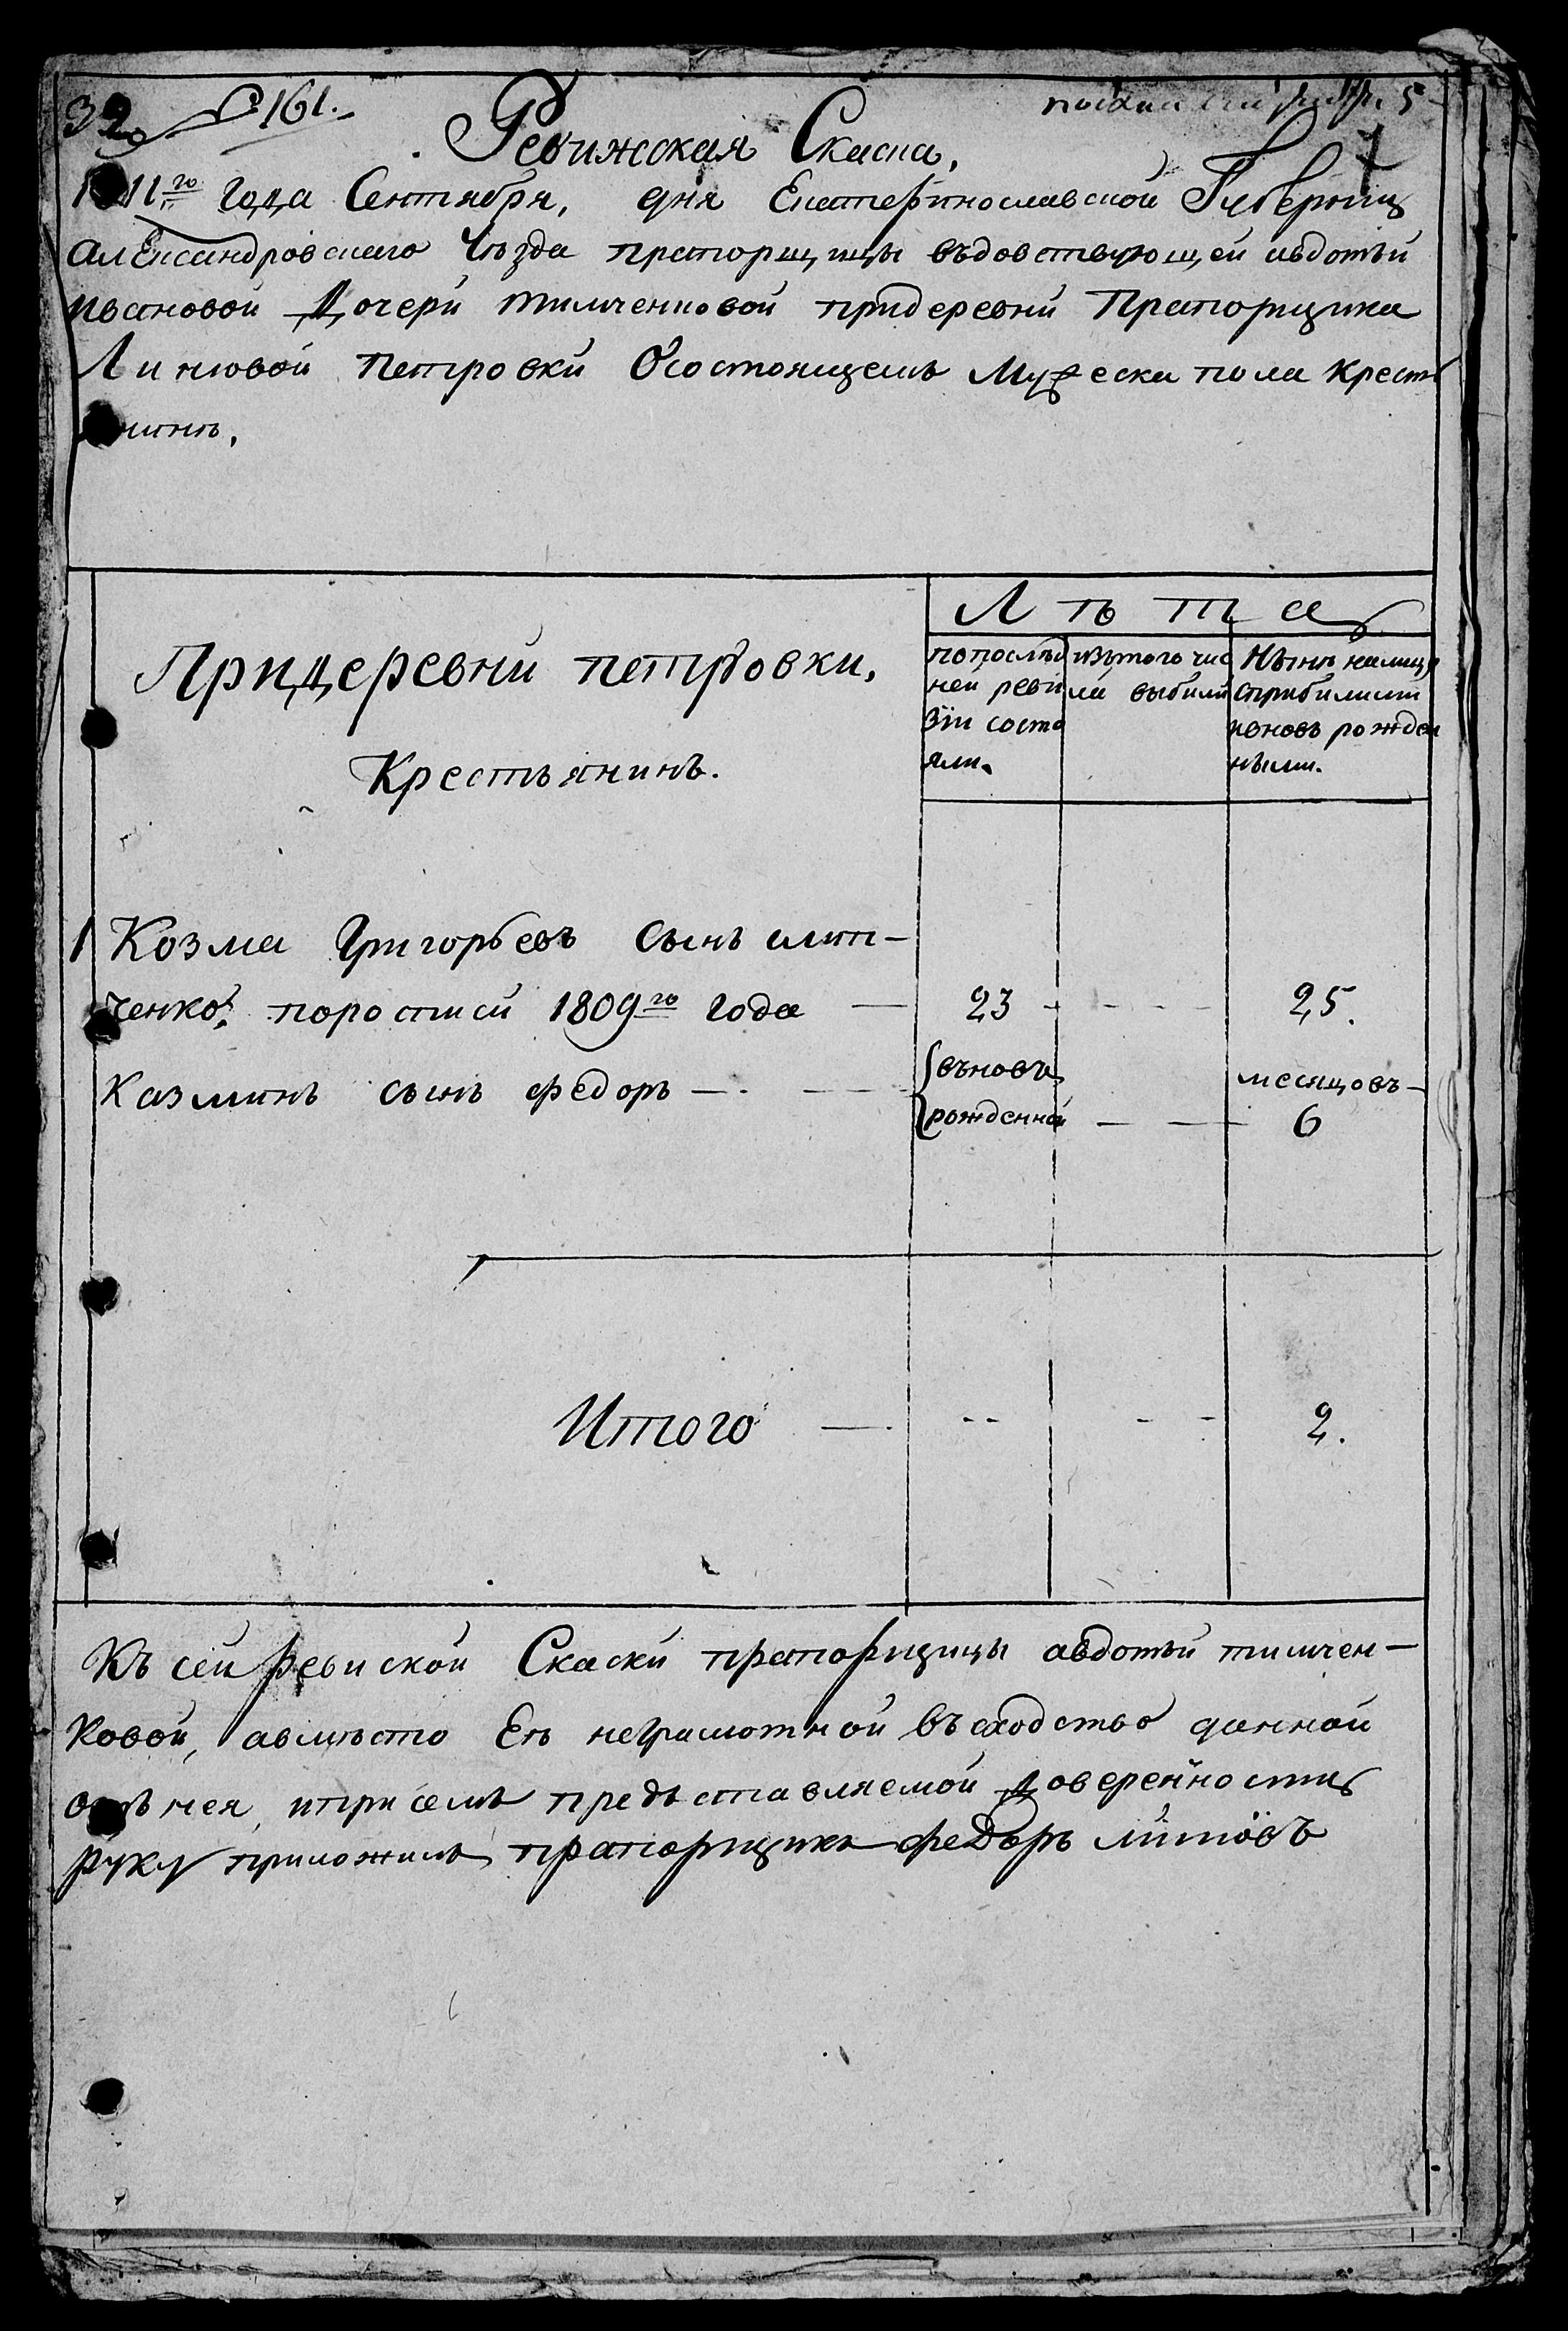 32 161.
Ревижская Скаска,
1811го года Сентября, дня Екатеринославской Губернии
Александровскаго Уезда прапорщицы въдовствующей авдотьи
ивановой Дочери тимченковой придеревни Прапорщика
Линтовой петровки Осостоящемъ Мужеска пола крестъ
янинъ.
Лѣта
Придеревни петровки,
Крестьянинъ.
попослѣд
ней реви
зіи состо
яли.
изтого чис
ла выбыли
Нынѣ налицо
сприбилими
ивновь рожден
ными.
1 Козма Григорьевъ сынъ
ченко, поросписи 1809го года — 23 - - - - 25.
Казминъ сынъ федоръ — - — вьновь рожденной — — месяцовъ 6
Итого — - - - - 2.
Къ сей Ревиской Скаски прапорщицы авдотьи тимчен-
ковой, авместо Еѣ неграмотной въсходство данной
отъ нея, ипри семъ предъставляемой Доверенности
руку приложилъ прапорщикъ федоръ